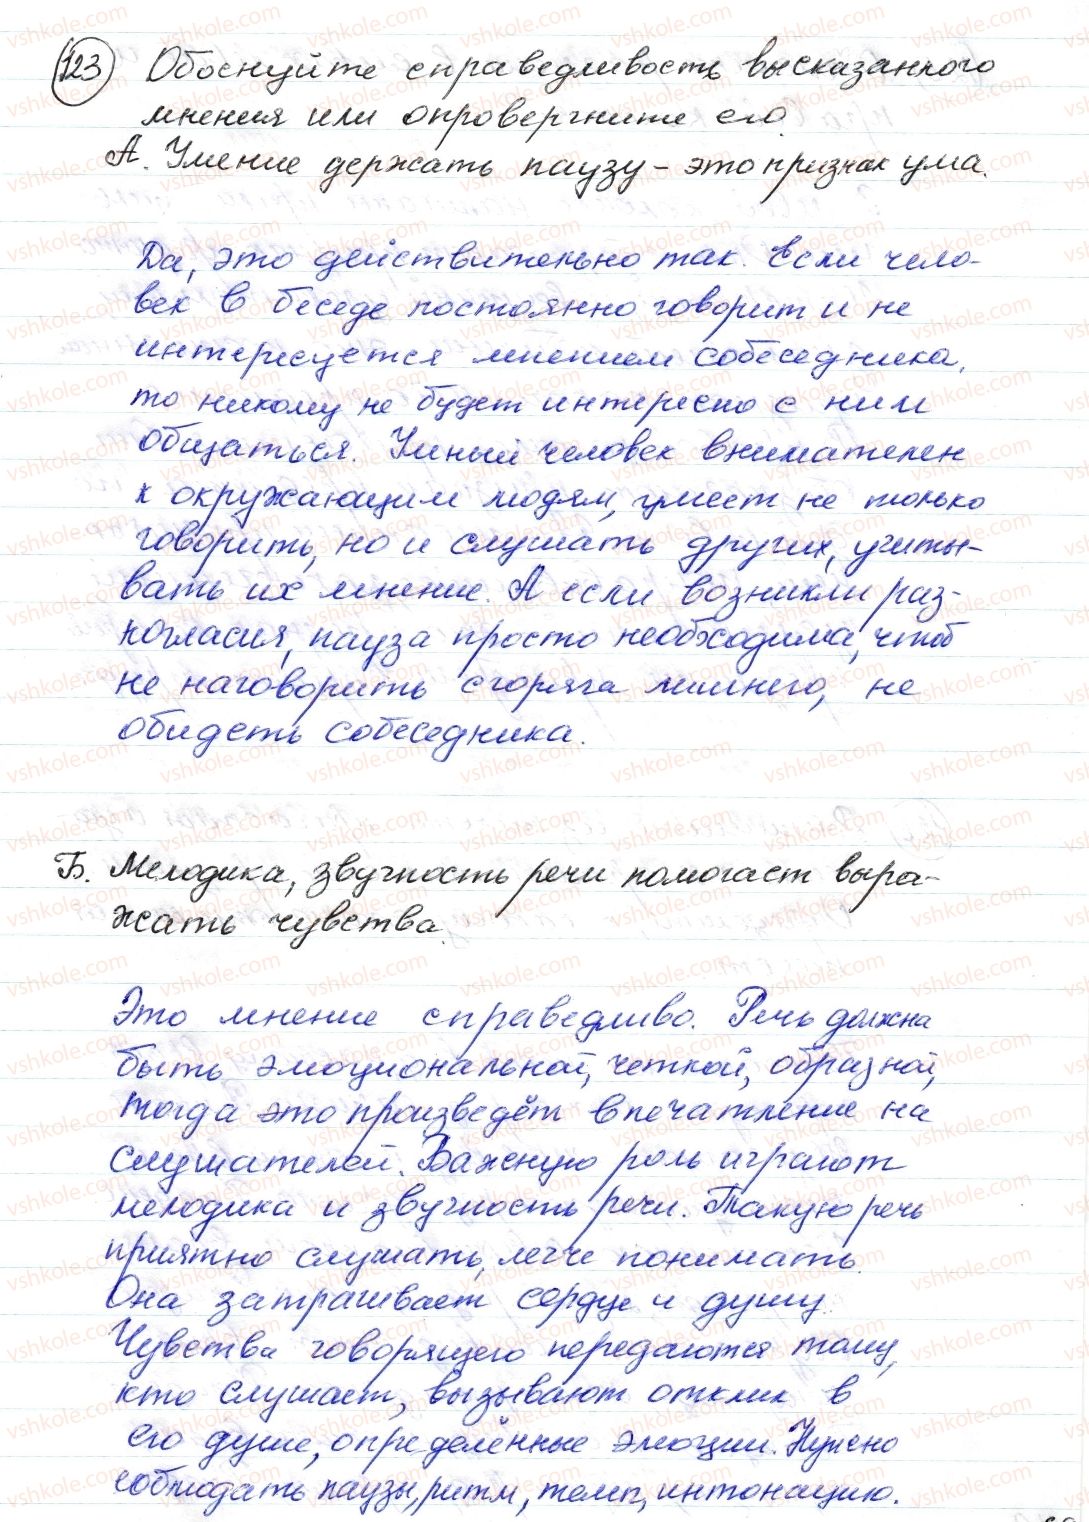 123 Обоснуйте справедливость высказанного
мнения или опровергните его.
А. Умение держать паузу – это признак ума.
Да, это действительно так. Если чело-
век в беседе постоянно говорит и не
интересуется мнением собеседника,
то никому не будет интересно с ним
общаться. Умный человек внимателен
к окружающим людям, умеет не только
говорить, но и слушать других, учиты-
вать их мнение. А если возникли раз-
ногласия, пауза просто необходима, чтоб
не наговорить сгоряча лишнего, не
обидеть собеседника.
Б. Мелодика, звучность речи помогает выра-
жать чувства.
Это мнение справедливо. Речь должна
быть эмоциональной, четкой, образной,
тогда это произведёт впечатление на
слушателей. Важную роль играют
мелодика и звучность речи. Такую речь
приятно слушать, легче понимать.
Она затрагивает сердце и душу.
Чувства говорящего передаются тому,
кто слушает, вызывают отклик в
его душе, определённые эмоции. Нужно
соблюдать паузы, ритм, темп, интонацию.